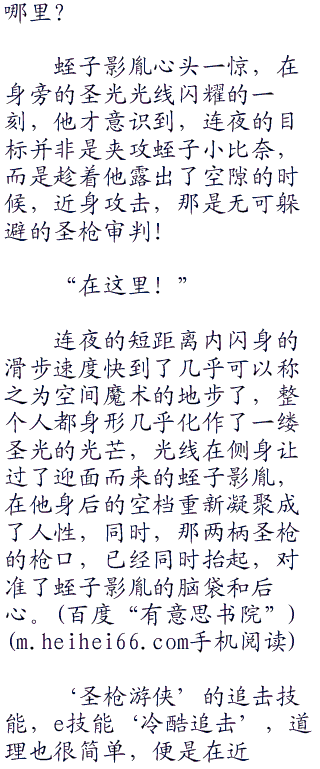 哪里？
蛭子影胤心头一惊，在
身旁的圣光光线闪耀的一
刻，他才意识到，连夜的目
标并非是夹攻蛭子小比奈，
而是趁着他露出了空隙的时
候，近身攻击，那是无可躲
避的圣枪审判！
“在这里！”
连夜的短距离内闪身的
滑步速度快到了几乎可以称
之为空间魔术的地步了，整
个人都身形几乎化作了一缕
圣光的光芒，光线在侧身让
过了迎面而来的蛭子影胤，
在他身后的空档重新凝聚成
了人性，同时，那两柄圣枪
的枪口，已经同时抬起，对
准了蛭子影胤的脑袋和后
心。(百度“有意思书院”)
(m.heihei66.com手机阅读)
‘圣枪游侠’的追击技
能，e技能‘冷酷追击’，道
理也很简单，便是在近